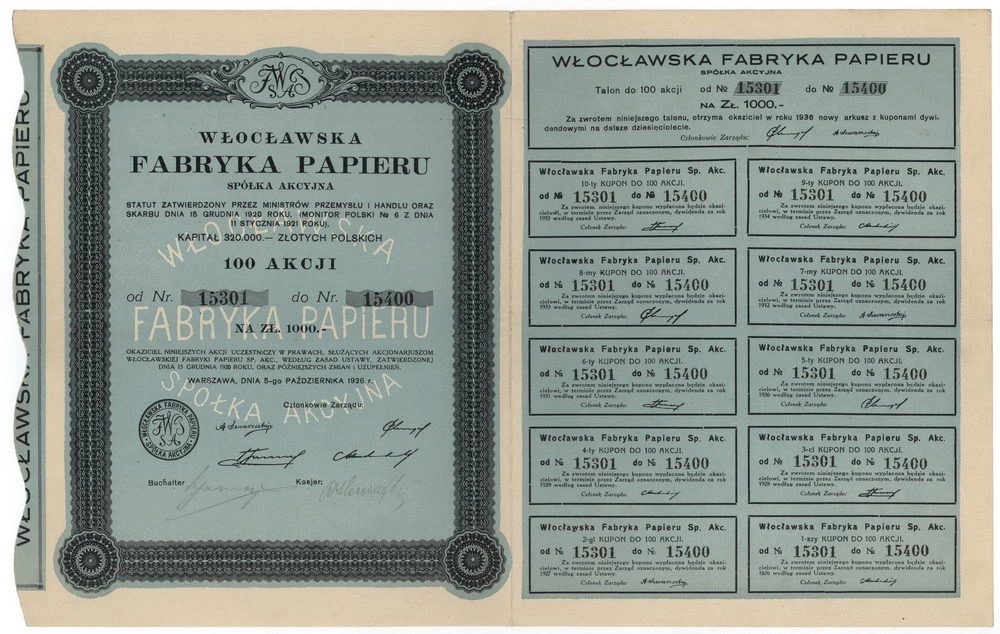 WŁOCŁAWSKA
FABRYKA PAPIERU
SPÓŁKA AKCYJNA
STATUT ZATWIERDZONY PRZEZ MINISTRÓW PRZEMYSŁU I HANDLU ORAZ
SKARBU DNIA 15 GRUDNIA 1920 ROKU. (MONITOR POLSKI № 6 Z DNIA
11 STYCZNIA 1921 ROKU).
KAPITAŁ 320.000.— ZŁOTYCH POLSKICH
100 AKCJI
od Nr. 15301 do Nr. 15400
NA ZŁ. 1000.-
OKAZICIEL NINIEJSZYCH AKCJI UCZESTNICZY W PRAWACH, SŁUŻĄCYCH AKCJONARJUSZOM
WŁOCŁAWSKIEJ FABRYKI PAPIERU SP. AKC., WEDŁUG ZASAD USTAWY, ZATWIERDZONEJ
DNIA 15 GRUDNIA 1920 ROKU, ORAZ PÓŹNIEJSZYCH ZMIAN I UZUPEŁNIEŃ.
WARSZAWA, DNIA 5-go PAŹDZIERNIKA 1926 r.
WŁOCŁAWSKA
FABRYKA PAPIERU
SPÓŁKA AKCYJNA
Członkowie Zarządu:
WŁOCŁAWSKA FABRYKA PAPIERU
SPÓŁKA AKCYJNA
A Szwarcsztejn
Buchalter Kasjer:
WŁOCŁAWSKA FABRYKA PAPIERU
WŁOCŁAWSKA FABRYKA PAPIERU
SPÓŁKA AKCYJNA
Talon do 100 akcji od № 15301 do № 15400
NA ZŁ. 1000.-
Za zwrotem niniejszego talonu, otrzyma okaziciel w roku 1936 nowy arkusz z kuponami dywi-
dendowymi na dalsze dziesięciolecie.
Członkowie Zarządu:
Włocławska Fabryka Papieru Sp. Akc.
10-ty KUPON DO 100 AKCJI.
od № 15301 do № 15400
Za zwrotem niniejszego kuponu wypłacona będzie okazi-
cielowi, w terminie przez Zarząd oznaczonym, dywidenda za rok
1935 według zasad Ustawy.
Członek Zarządu:
Włocławska Fabryka Papieru Sp. Akc.
9-ty KUPON DO 100 AKCJI.
od № 15301 do № 15400
Za zwrotem niniejszego kuponu wypłacona będzie okazi-
cielowi, w terminie przez Zarząd oznaczonym, dywidenda za rok
1934 według zasad Ustawy.
Członek Zarządu:
Włocławska Fabryka Papieru Sp. Akc.
8-my KUPON DO 100 AKCJI.
od № 15301 do № 15400
Za zwrotem niniejszego kuponu wypłacona będzie okazi-
cielowi, w terminie przez Zarząd oznaczonym, dywidenda za rok
1933 według zasad Ustawy.
Członek Zarządu:
Włocławska Fabryka Papieru Sp. Akc.
7-my KUPON DO 100 AKCJI.
od № 15301 do № 15400
Za zwrotem niniejszego kuponu wypłacona będzie okazi-
cielowi, w terminie przez Zarząd oznaczonym, dywidenda za rok
1932 według zasad Ustawy.
Członek Zarządu:
Włocławska Fabryka Papieru Sp. Akc.
6-ty KUPON DO 100 AKCJI.
od № 15301 do № 15400
Za zwrotem niniejszego kuponu wypłacona będzie okazi-
cielowi, w terminie przez Zarząd oznaczonym, dywidenda za rok
1931 według zasad Ustawy.
Członek Zarządu:
Włocławska Fabryka Papieru Sp. Akc.
5-ty KUPON DO 100 AKCJI.
od № 15301 do № 15400
Za zwrotem niniejszego kuponu wypłacona będzie okazi-
cielowi, w terminie przez Zarząd oznaczonym, dywidenda za rok
1930 według zasad Ustawy.
Członek Zarządu:
Włocławska Fabryka Papieru Sp. Akc.
4-ty KUPON DO 100 AKCJI.
od № 15301 do № 15400
Za zwrotem niniejszego kuponu wypłacona będzie okazi-
cielowi, w terminie przez Zarząd oznaczonym, dywidenda za rok
1929 według zasad Ustawy.
Członek Zarządu:
Włocławska Fabryka Papieru Sp. Akc.
3-ci KUPON DO 100 AKCJI.
od № 15301 do № 15400
Za zwrotem niniejszego kuponu wypłacona będzie okazi-
cielowi, w terminie przez Zarząd oznaczonym, dywidenda za rok
1928 według zasad Ustawy.
Członek Zarządu:
Włocławska Fabryka Papieru Sp. Akc.
2-gi KUPON DO 100 AKCJI.
od № 15301 do № 15400
Za zwrotem niniejszego kuponu wypłacona będzie okazi-
cielowi, w terminie przez Zarząd oznaczonym, dywidenda za rok
1927 według zasad Ustawy.
Członek Zarządu:
Włocławska Fabryka Papieru Sp. Akc.
1-szy KUPON DO 100 AKCJI.
od № 15301 do № 15400
Za zwrotem niniejszego kuponu wypłacona będzie okazi-
cielowi, w terminie przez Zarząd oznaczonym, dywidenda za rok
1926 według zasad Ustawy.
Członek Zarządu: